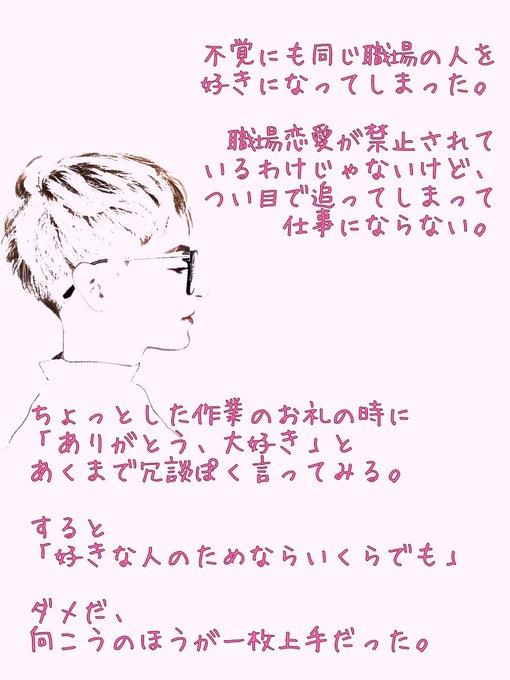 不覚にも同じ職場の人を
好きになってしまった。
職場恋愛が禁止されて
いるわけじゃないけど、
つい目で追ってしまって
仕事にならない。
ちょっとした作業のお礼の時に
「ありがとう、大好き」と
あくまで冗談ぽく言ってみる。
すると
「好きな人のためならいくらでも」
ダメだ、
向こうのほうが一枚上手だった。